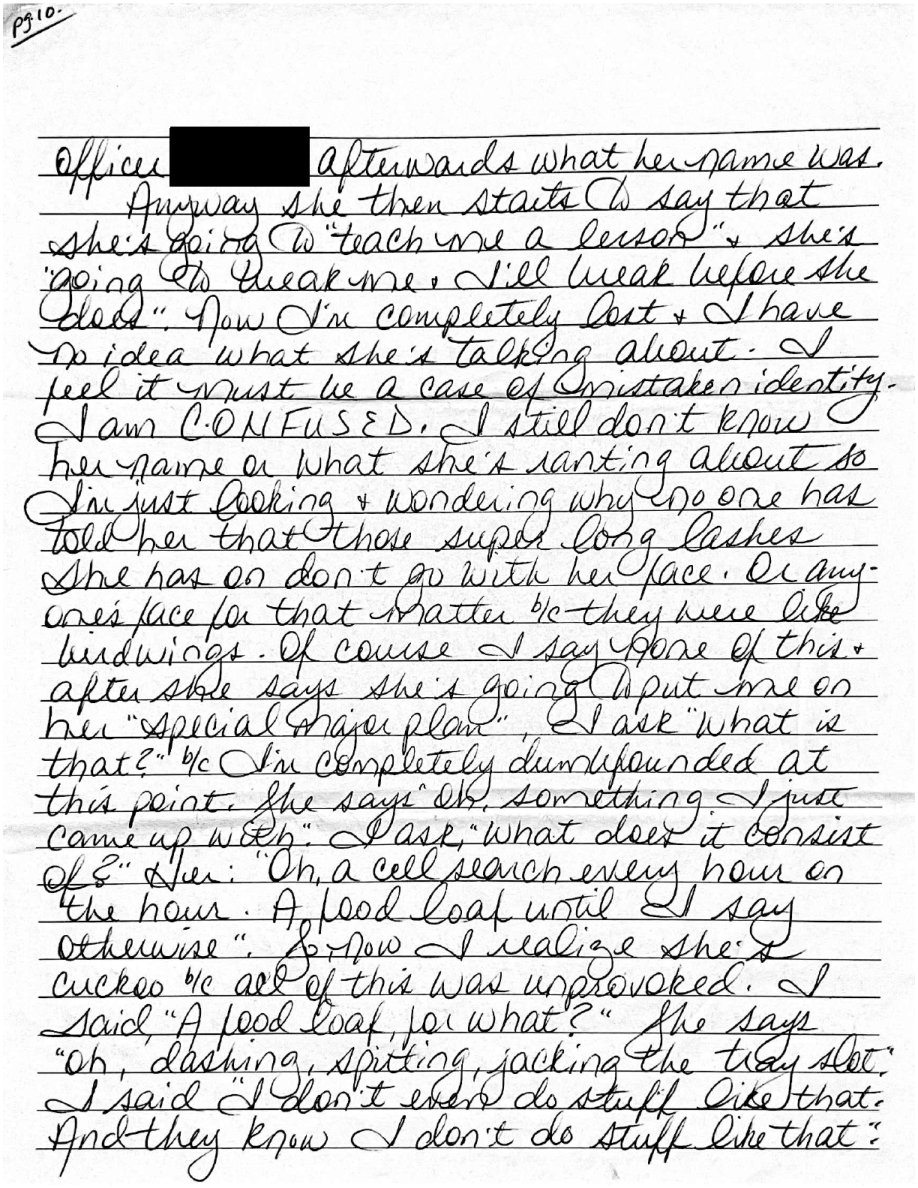 pg.10.
Officer afterwards what her name was.
Anyway she then starts to say that
she's going to "teach me a lesson" & she's
"going to break me & I'll break before she
does". Now I'm completely lost & I have
no idea what she's talking about. I
feel it must be a case of mistaken identity.
I am C.O.N.FUSED. I still don't know
her name or what she's ranting about so
I'm just looking & wondering why no one has
told her that those super long lashes
she has on don't go with her face. Or any-
one's face for that matter b/c they were like
birdwings. Of course I say none of this &
after she says she's going to put me on
her "special major plan", I ask "what is
that?" b/c I'm completely dumbfounded at
this point. She says "oh, something I just
came up with". I ask, "what does it consist
of?" Her: "Oh, a cell search every hour on
the hour. A food loaf until I say
otherwise". So now I realize she's
cuckoo b/c all of this was unprovoked. I
said, "A food loaf, for what?" She says
"oh, dashing, spitting, jacking the tray slot."
I said "I don't even do stuff like that.
And they know I don't do stuff like that".